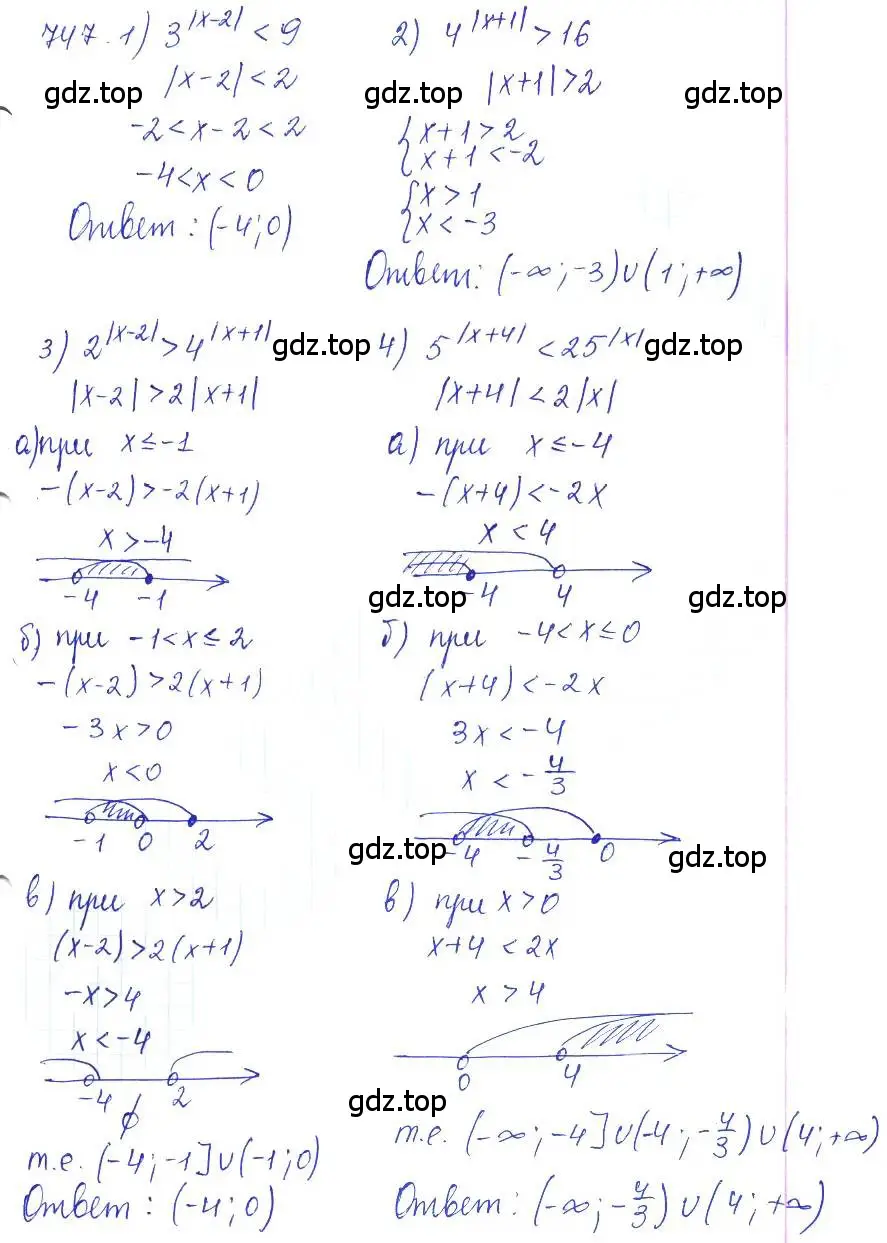 747. 1) 3^|x-2| < 9
gdz.top |x-2| < 2
-2 < x-2 < 2
-4 < x < 0
Ответ: (-4; 0)
2) 4^|x+1| > 16
gdz.top |x+1| > 2 gdz.top
{x+1 > 2
{x+1 < -2
{x > 1
{x < -3
Ответ: (-∞; -3) ∪ (1; +∞)
3) 2^|x-2| > 4^|x+1| gdz.top
|x-2| > 2|x+1|
а) при x ≤ -1
-(x-2) > -2(x+1)
x > -4
-4 -1
б) при -1 < x ≤ 2
-(x-2) > 2(x+1)
-3x > 0
x < 0
-1 0 2
в) при x > 2
(x-2) > 2(x+1)
-x > 4
x < -4
-4 ∅ 2
т.е. (-4; -1] ∪ (-1; 0)
Ответ: (-4; 0)
4) 5^|x+4| < 25^|x| gdz.top
|x+4| < 2|x|
а) при x ≤ -4
-(x+4) < -2x
x < 4
gdz.top -4 4 gdz.top
б) при -4 < x ≤ 0
(x+4) < -2x
3x < -4
x < -4/3
gdz.top -4 -4/3 0 gdz.top
в) при x > 0
x+4 < 2x
x > 4
0 4
gdz.top
т.е. (-∞; -4] ∪ (-4; -4/3) ∪ (4; +∞)
Ответ: (-∞; -4/3) ∪ (4; +∞)